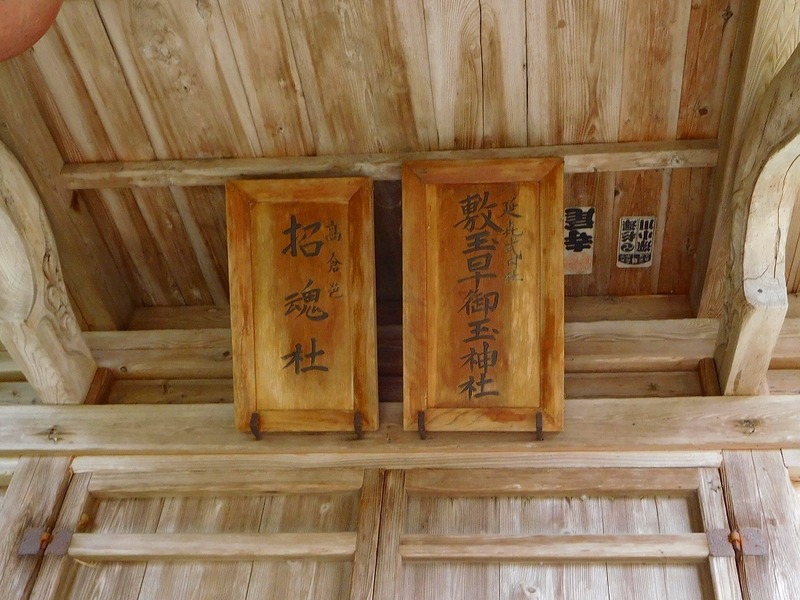 延喜式内社
敷玉早御玉神社
高倉邑
招魂社